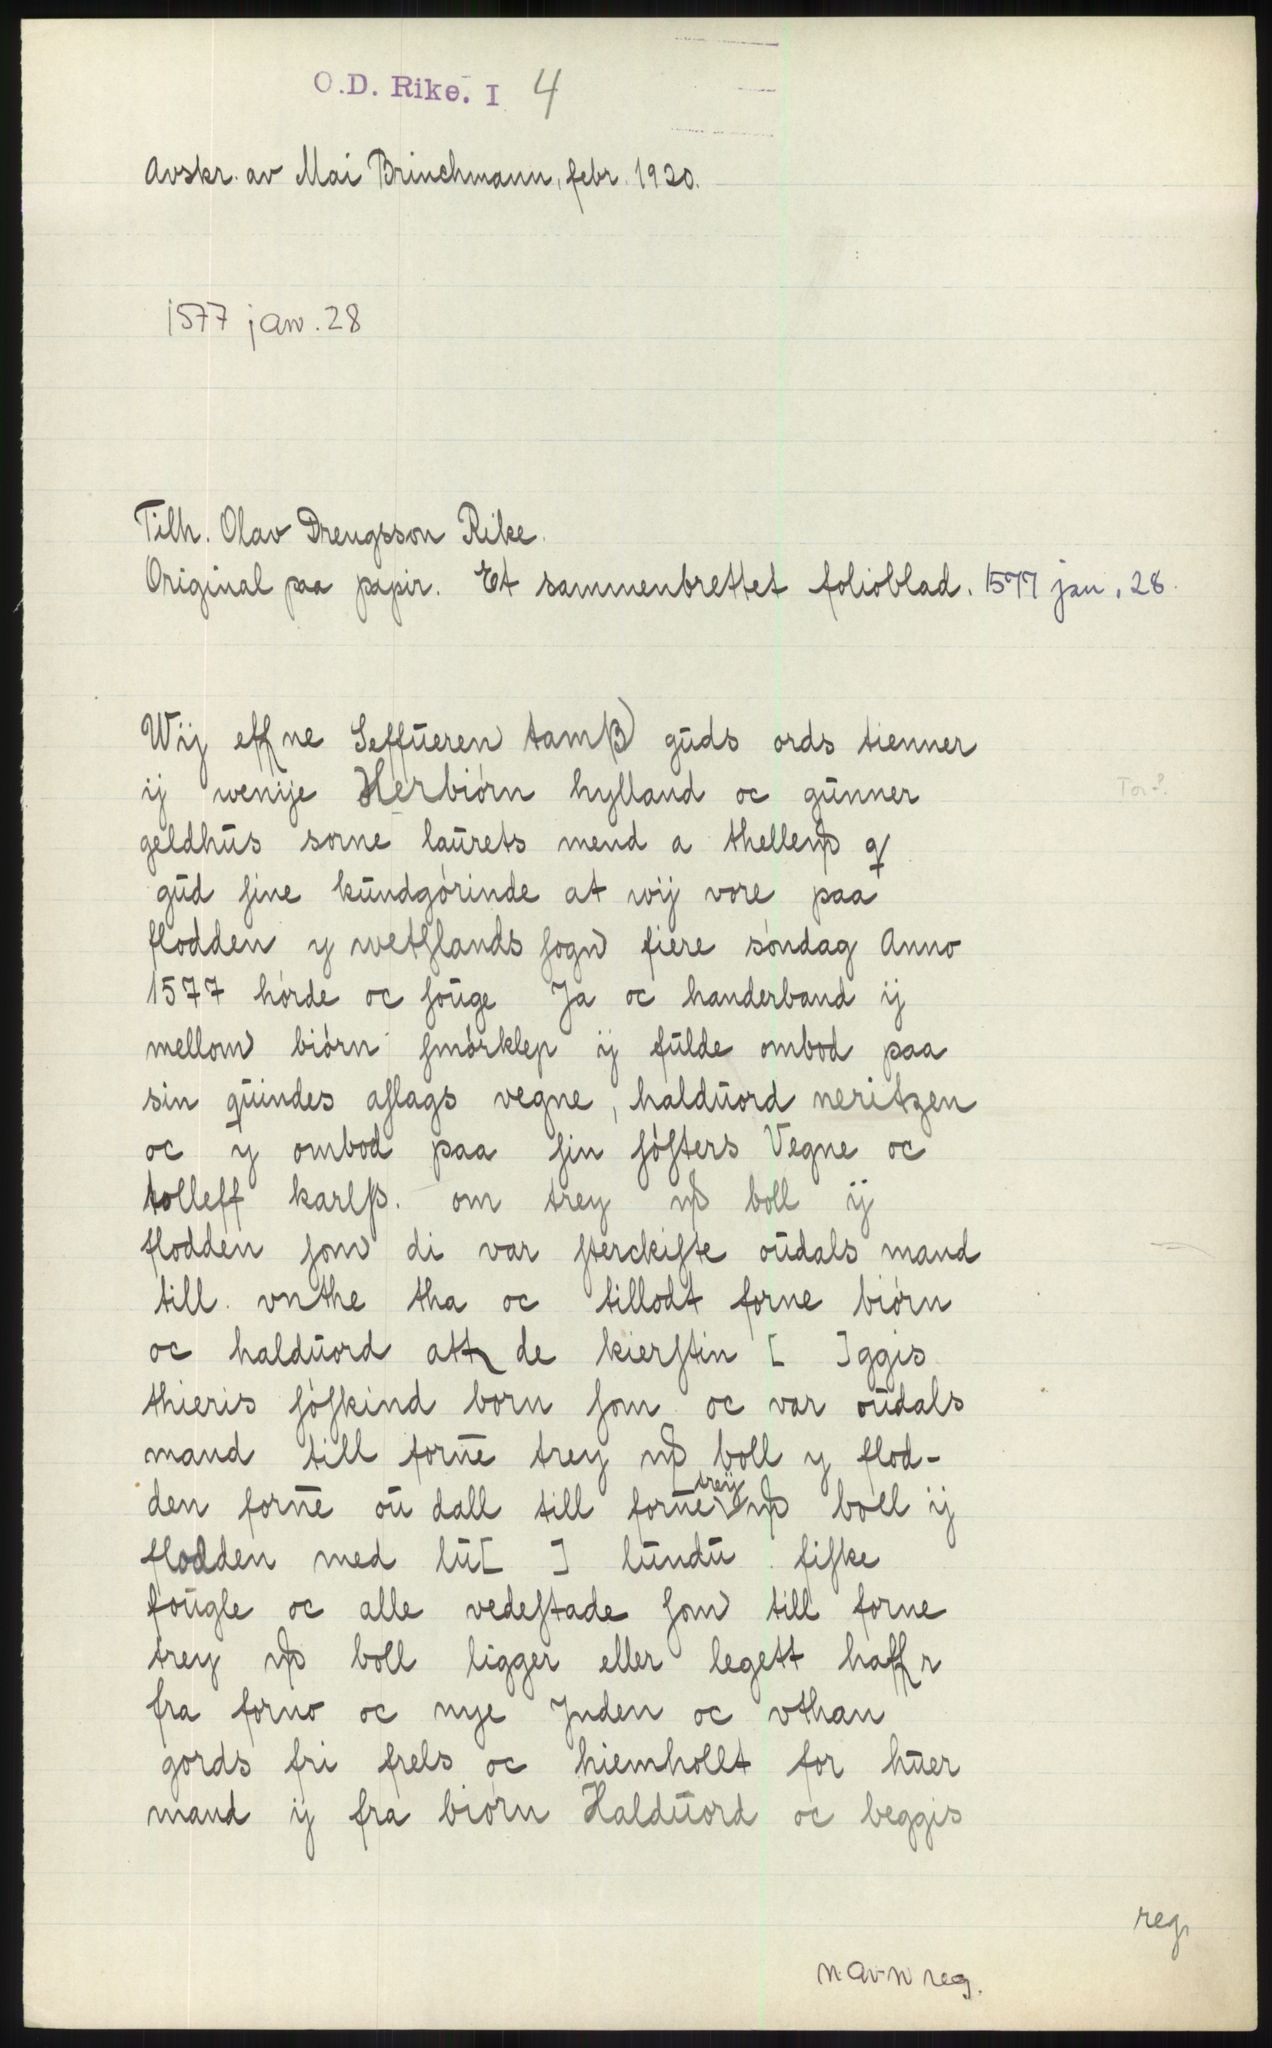 O.D. Rike. I 4
Avskr. av Mai Brinchmann, febr. 1920.
1577 jan. 28
Tilh. Olav Drengsson Rike.
Original paa papir. Et sammenbrettet folioblad. 1577 jan. 28.
Wij effne Seffūeren tamβ gūds ords tienner
ij wenije Herbiørn hylland oc gūnner
Tor?
geldhūs sorne laūrets mend a
gūd ſine kūndgørinde at wij vore paa
flodden y wetſlands ſogn fiere søndag Anno
1577 hørde oc ſoūge Ja oc handerband ij
mellom biørn ſmørklep ij fūlde ombod paa
sin qūindes aflags vegne, haldūord neritzen
oc y ombod paa ſin ſøſters Vegne oc
tolleff karlβ. om trey boll ij
flodden ſom di var ſterckiſte oūdals mand
till vnthe tha oc tillodt forne biørn
oc haldūord att de kierſtin [ ]ggis
thieris ſøſkind born ſom oc var oūdals
mand till forne trey boll y flod-
den forne oū dall till forne treij boll ij
flodden med lū[ ] lūndū fiſke
foūgle oc alle vedeſtade ſom till forne
trey boll ligger eller legett haffr
fra forno oc nye Jnden oc vthan
gords fri frels oc hiemhollt for hūer
mand ij fra biørn Haldūord oc beggis
reg.
navnreg.